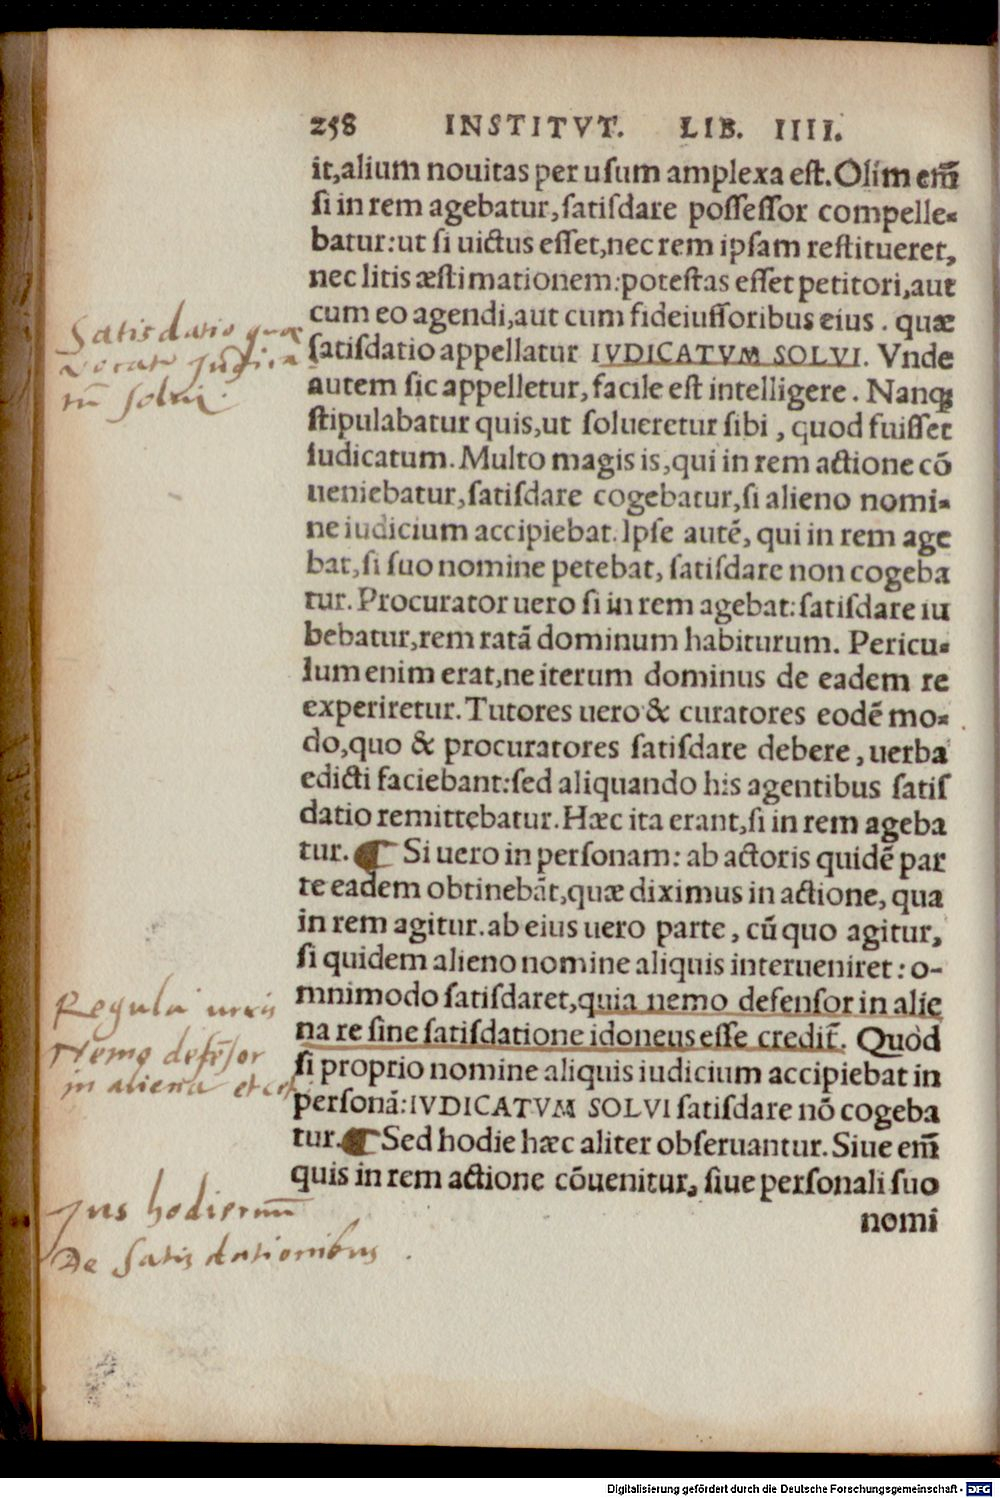 258 INSTITVT. LIB. IIII.
it,alium nouitas per usum amplexa est.Olim em̃
si in rem agebatur,satisdare possessor compelle-
batur:ut si uictus esset,nec rem ipsam restitueret,
nec litis æstimationem:potestas esset petitori,aut
cum eo agendi,aut cum fideiussoribus eius . quæ
satisdatio appellatur IVDICATVM SOLVI. Vnde
autem sic appelletur, facile est intelligere . Nanq;
stipulabatur quis,ut solueretur sibi , quod fuisset
iudicatum. Multo magis is,qui in rem actione cõ
ueniebatur,satisdare cogebatur,si alieno nomi-
ne iudicium accipiebat.Ipse autẽ, qui in rem age
bat,si suo nomine petebat, satisdare non cogeba
tur. Procurator uero si in rem agebat:satisdare iu
bebatur,rem ratã dominum habiturum. Pericu-
lum enim erat,ne iterum dominus de eadem re
experiretur.Tutores uero & curatores eodẽ mo-
do,quo & procuratores satisdare debere , uerba
edicti faciebant:sed aliquando his agentibus satis
datio remittebatur. Hæc ita erant,si in rem ageba
tur. ¶ Si uero in personam: ab actoris quidẽ par
te eadem obtinebãt,quæ diximus in actione, qua
in rem agitur.ab eius uero parte , cũ quo agitur,
si quidem alieno nomine aliquis interueniret : o-
mnimodo satisdaret,quia nemo defensor in alie
na re sine satisdatione idoneus esse credit̃. Quòd
si proprio nomine aliquis iudicium accipiebat in
personã:IVDICATVM SOLVI satisdare nõ cogeba
tur. ¶ Sed hodie hæc aliter obseruantur. Siue em̃
quis in rem actione cõuenitur, siue personali suo
nomi
Satisdatio quæ
vocatr Judica
tũ solui.
Regula iuris
Nemo defẽsor
in aliena et cet
Jus hodiernũ
De satisdationibus .
Digitalisierung gefördert durch die Deutsche Forschungsgemeinschaft - DFG